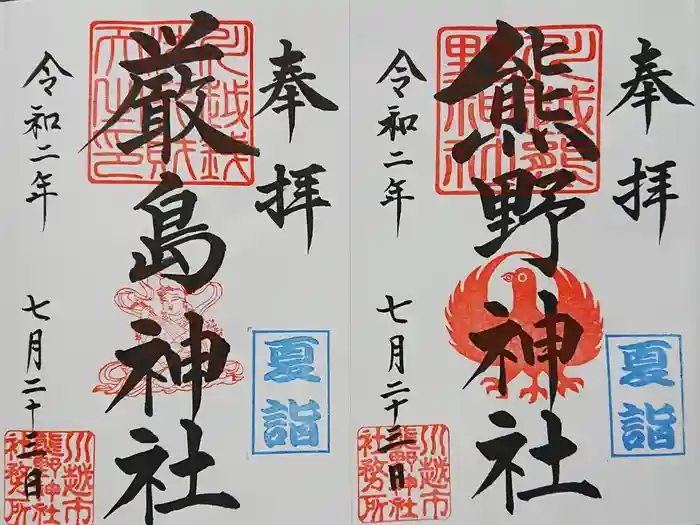 奉拝
熊野神社
夏詣
令和二年
七月二十三日
川越市
熊野神社
社務所
奉拝
厳島神社
夏詣
令和二年
七月二十三日
川越市
熊野神社
社務所